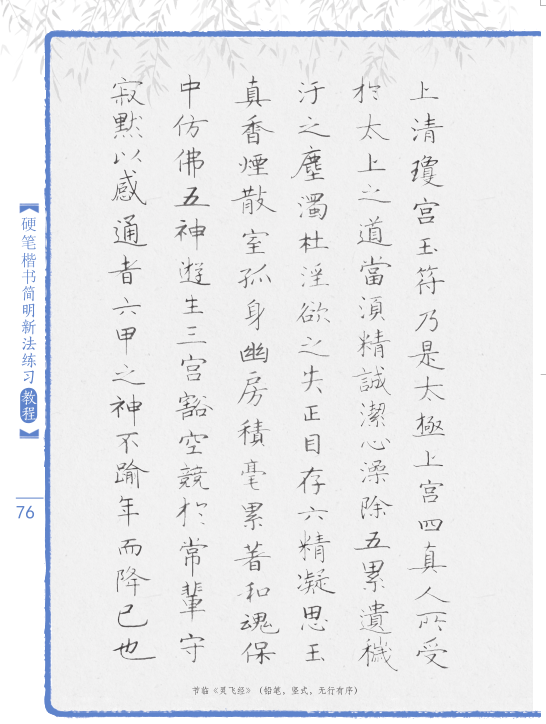 上清瓊宮玉符乃是太極上宮四真人所受
於太上之道當須精誠潔心澡除五累遺穢
汙之塵濁杜淫欲之失正目存六精凝思玉
真香煙散室孤身幽房積毫累著和魂保
中仿佛五神遊生三宮豁空競於常輩守
寂默以感通者六甲之神不踰年而降已也
节临《灵飞经》（铅笔，竖式，无行有序）
硬笔楷书简明新法练习教程
76